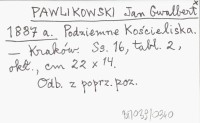 PAWLIKOWSKI Jan Gwalbert
1887 a. Podziemne Kościeliska.
— Kraków. Ss. 16, tabl. 2,
okł., cm 22 x 14.
Odb. z poprz. poz.